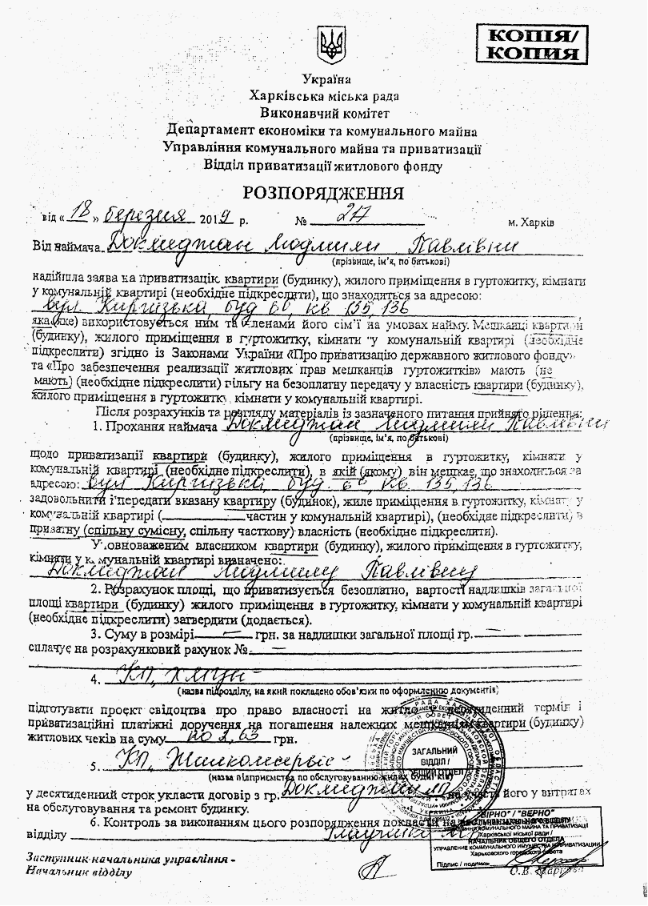 КОПІЯ/
КОПИЯ
Україна
Харківська міська рада
Виконавчий комітет
Департамент економіки та комунального майна
Управління комунального майна та приватизації
Відділ приватизації житлового фонду
РОЗПОРЯДЖЕННЯ
від « 18 » березня 2019 р. № м. Харків
Від наймача Докмеджан Людмили Павлівни
(прізвище, ім'я, по батькові)
надійшла заява на приватизацію квартири (будинку), жилого приміщення в гуртожитку, кімнати
у комунальній квартирі (необхідне підкреслити), що знаходиться за адресою:
вул. Киргизька буд 6б, кв 135, 136
яка(яке) використовується ним та членами його сім'ї на умовах найму. Мешканці квартири
(будинку), жилого приміщення в гуртожитку, кімнати у комунальній квартирі (необхідне
підкреслити) згідно із Законами України «Про приватизацію державного житлового фонду»
та «Про забезпечення реалізації житлових прав мешканців гуртожитків» мають (не
мають) (необхідне підкреслити) пільгу на безоплатну передачу у власність квартири (будинку),
жилого приміщення в гуртожитку, кімнати у комунальній квартирі.
Після розрахунків та розгляду матеріалів із зазначеного питання прийнято рішення:
1. Прохання наймача Докмеджан Людмили Павлівни
(прізвище, ім'я, по батькові)
щодо приватизації квартири (будинку), жилого приміщення в гуртожитку, кімнати у
комунальній квартирі (необхідне підкреслити), в якій (якому) він мешкає, що знаходиться за
адресою: вул Киргизька буд. 6б, кв. 135, 136
задовольнити і передати вказану квартиру (будинок), жиле приміщення в гуртожитку, кімнату у
комунальній квартирі ( частин у комунальній квартирі), (необхідне підкреслити) в
приватну (спільну сумісну, спільну часткову) власність (необхідне підкреслити).
Уповноваженим власником квартири (будинку), жилого приміщення в гуртожитку,
кімнати у комунальній квартирі визначено:
Докмеджан Людмилу Павлівну
2. Розрахунок площі, що приватизується безплатно, вартості надлишків загальної
площі квартири (будинку) жилого приміщення в гуртожитку, кімнати у комунальній квартирі
(необхідне підкреслити) затвердити (додається).
3. Суму в розмірі — грн. за надлишки загальної площі гр.
сплачує на розрахунковий рахунок № —
4. КП
(назва підрозділу, на який покладено обов'язки по оформленню документів)
підготувати проект свідоцтва про право власності на житло у десятиденний термін і
приватизаційні платіжні доручення на погашення належних мешканцям квартири (будинку)
житлових чеків на суму 2,63 грн.
5. КП „Жилкомсервіс"
(назва підприємства по обслуговуванню жилих будинків)
у десятиденний строк укласти договір з гр. на участь його у витратах
на обслуговування та ремонт будинку.
6. Контроль за виконанням цього розпорядження покласти на
відділу
ЗАГАЛЬНИЙ
ВІДДІЛ /
ОБЩИЙ ОТДЕЛ
"ВІРНО" / "ВЕРНО"
УПРАВЛІННЯ КОМУНАЛЬНОГО МАЙНА ТА ПРИВАТИЗАЦІЇ
Харківської міської ради /
НАЧАЛЬНИК ОБЩЕГО ОТДЕЛА
УПРАВЛЕНИЕ КОММУНАЛЬНОГО ИМУЩЕСТВА И ПРИВАТИЗАЦИИ
Харьковского городского совета
Підпис / подпись
Заступник начальника управління -
Начальник відділу О.В.